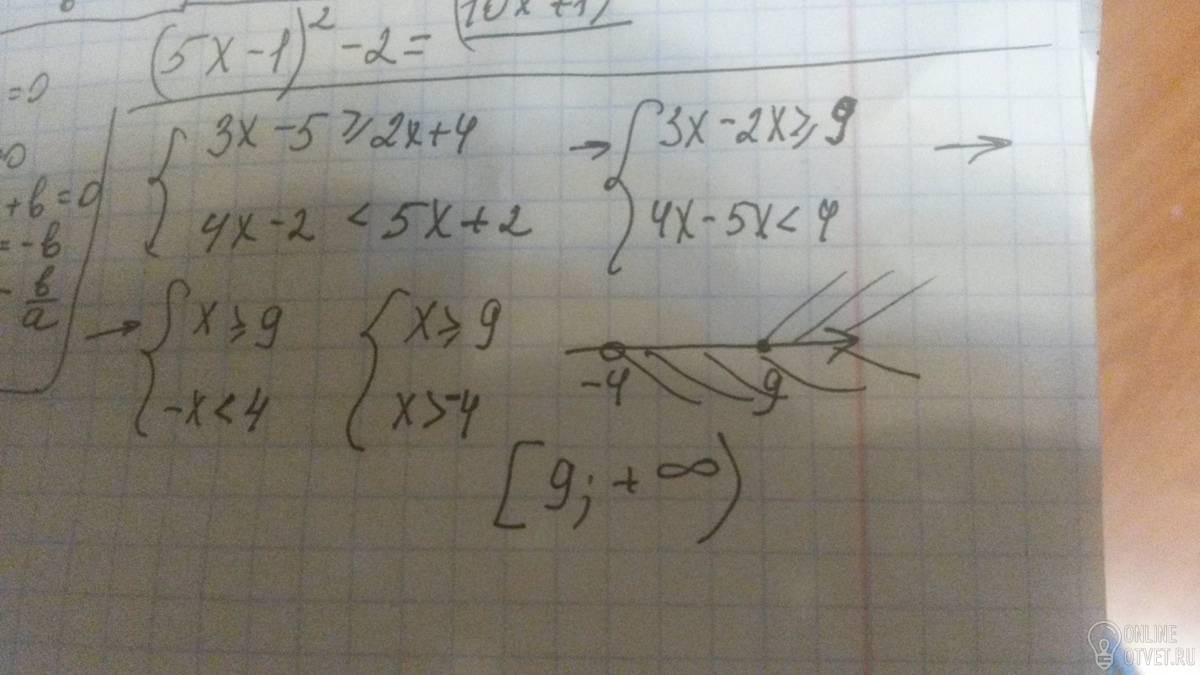 (5x-1)² -2= (10x+1)
=0
=0
+b=0
=-b
- b/a
{ 3x-5≥2x+4 → { 3x-2x≥9 →
4x-2 <5x+2 4x-5x<4
→ { x≥9 { x≥9
-x<4 x>-4
-4 9
[9;+∞)
ONLINE
OTVET.RU